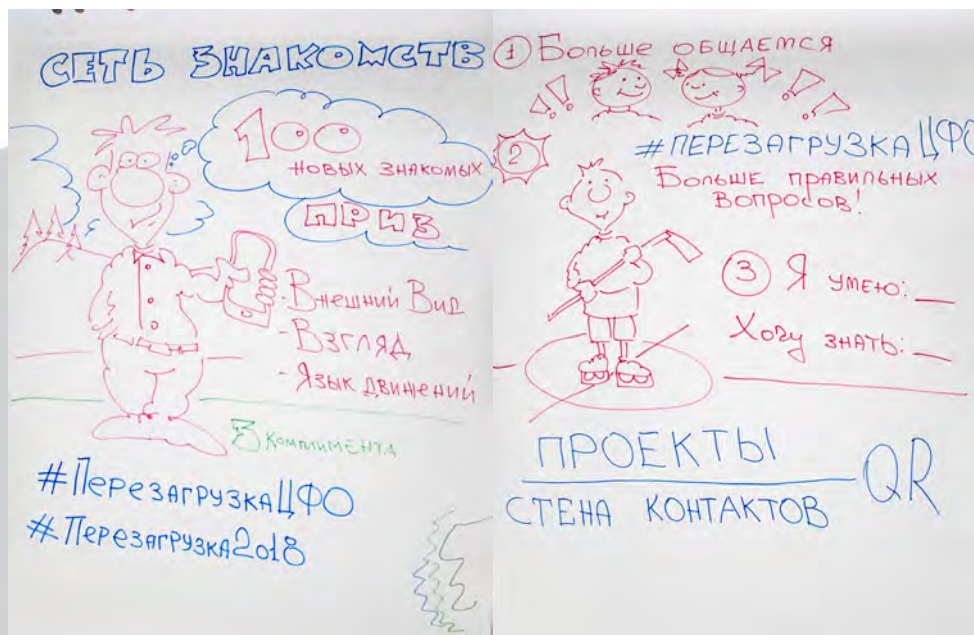 СЕТЬ ЗНАКОМСТВ
100
НОВЫХ ЗНАКОМЫХ
ПРИЗ
- Внешний Вид
- Взгляд
- Язык движений
3 комплимента
#ПерезагрузкаЦФО
#Перезагрузка2018
1 Больше общается
2
#ПЕРЕЗАГРУЗКАЦФО
Больше правильных
вопросов!
3 Я умею: __
Хочу знать: __
ПРОЕКТЫ
СТЕНА КОНТАКТОВ
QR